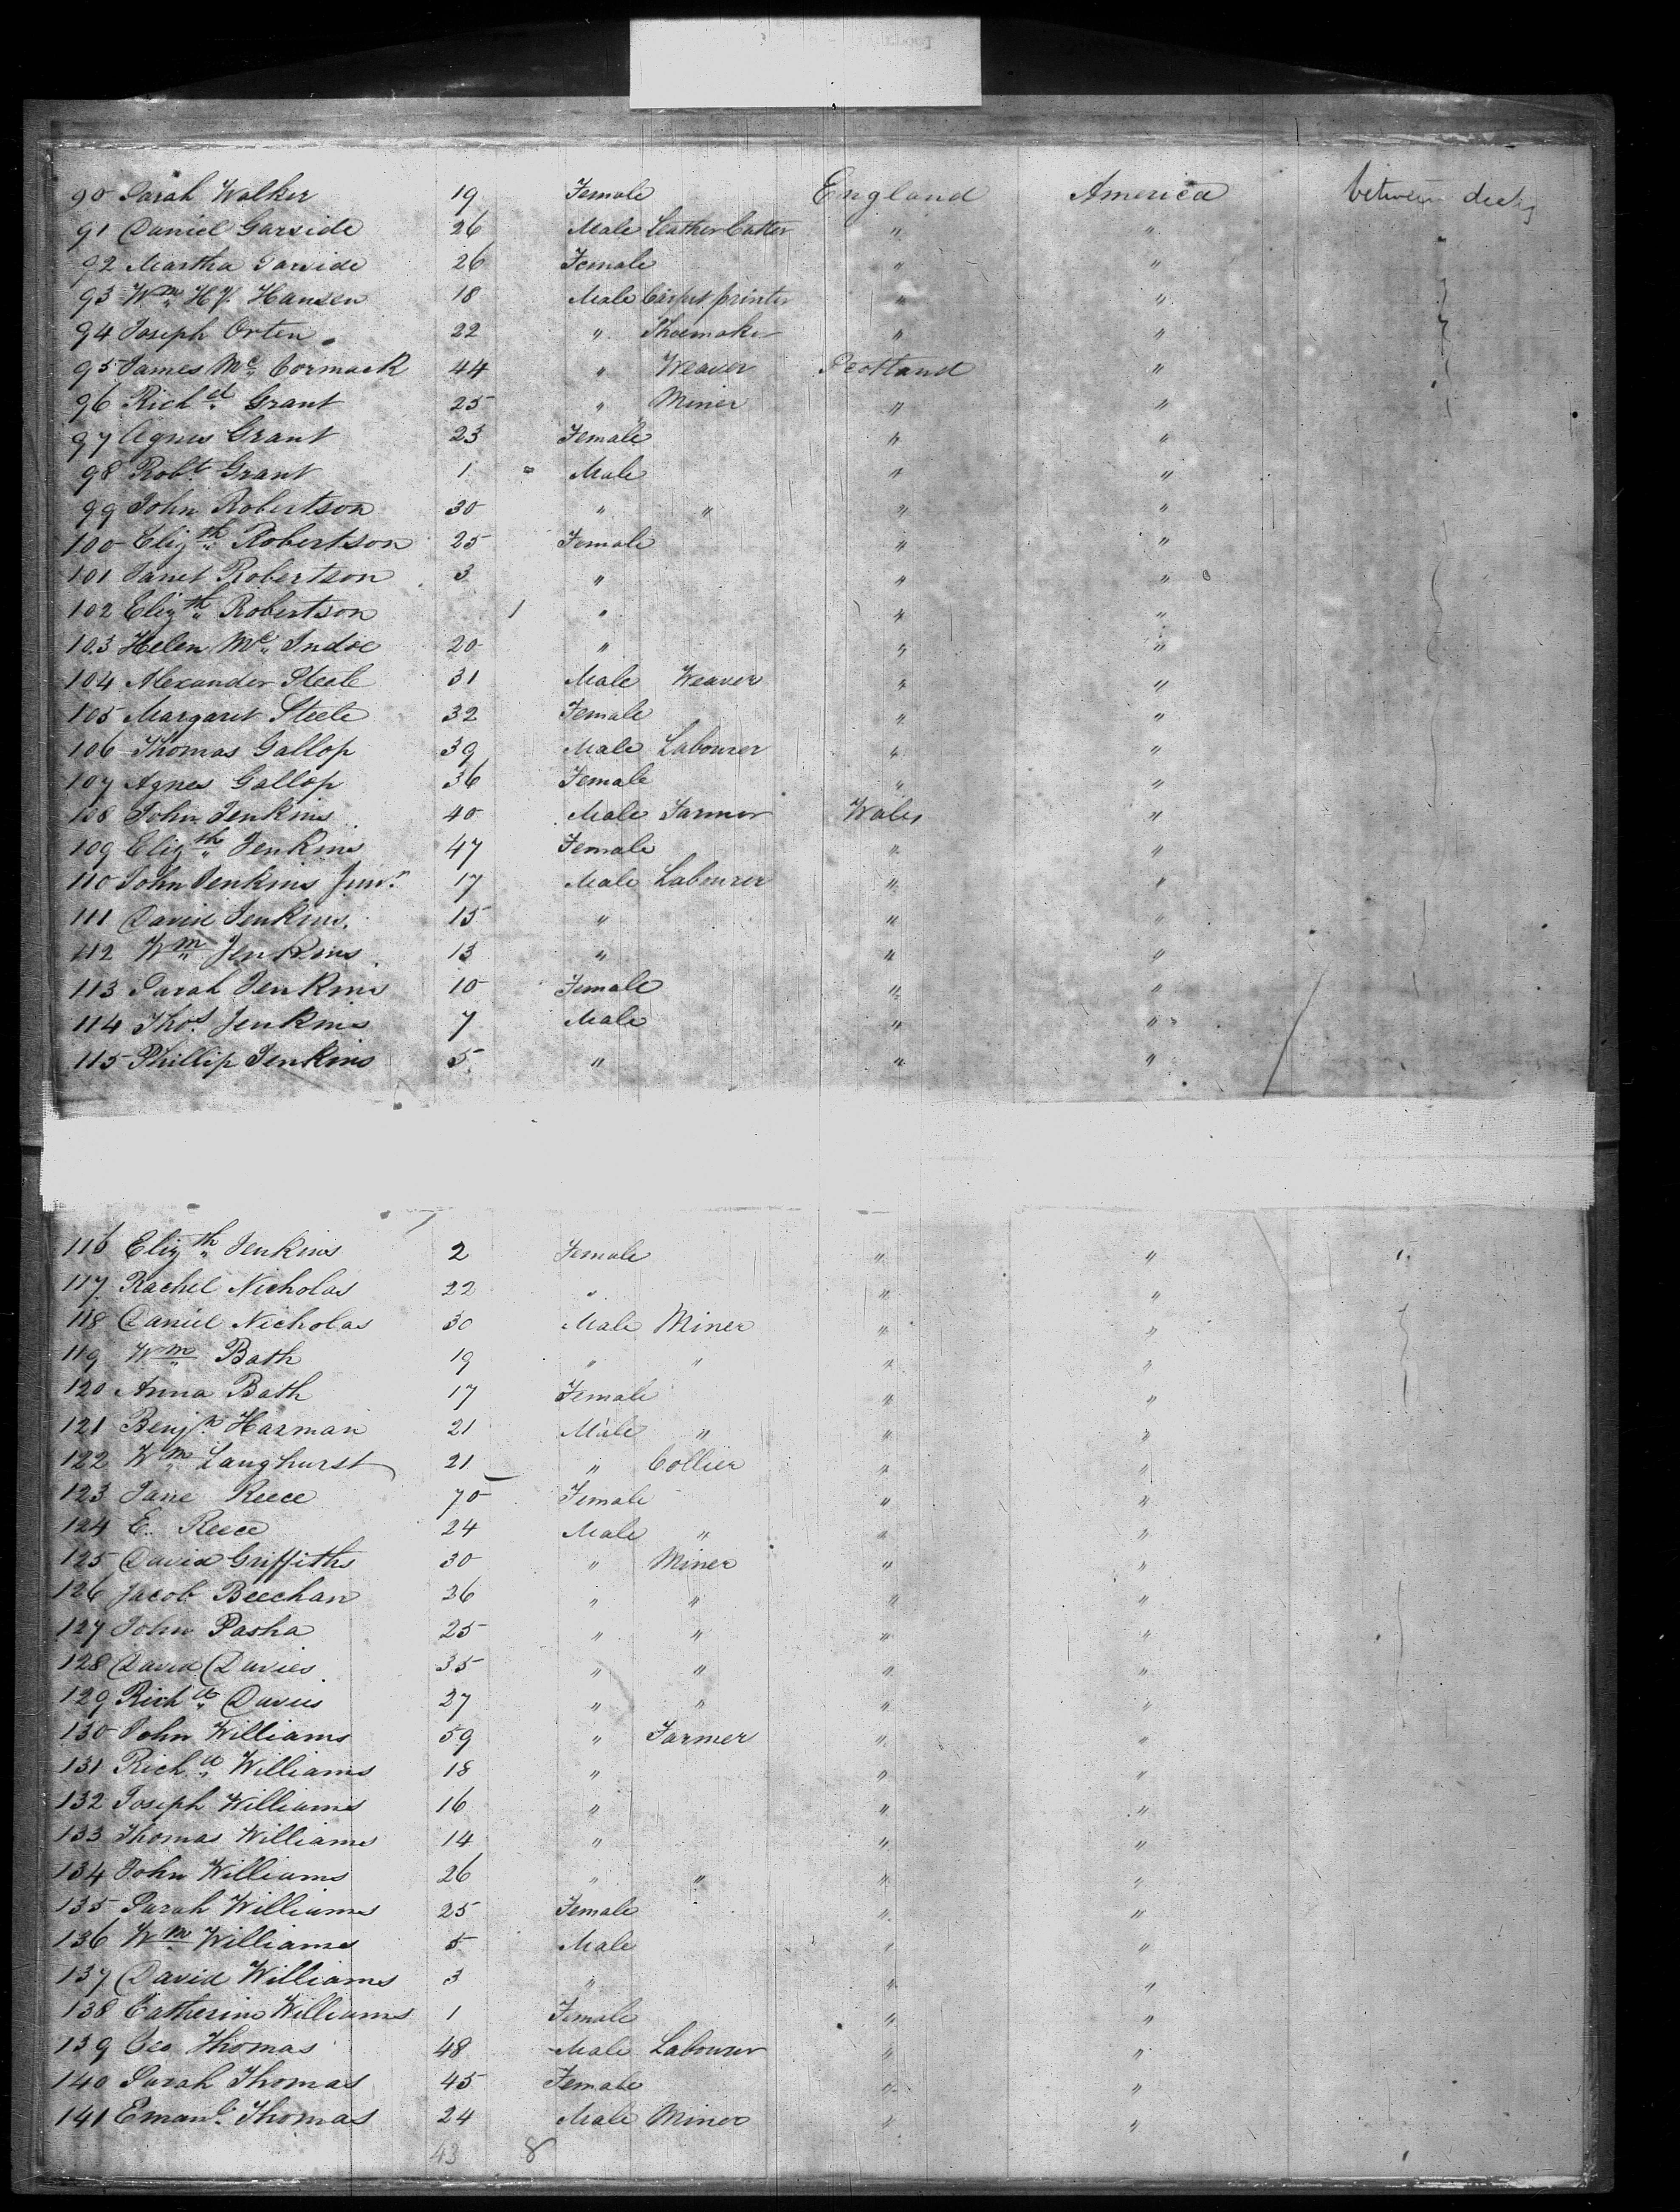 90 Sarah Walker 19 Female England America between decks
91 Daniel Garside 26 Male Leather Cutter " "
92 Martha Garside 26 Female " "
93 Wm Hy. Hansen 18 Male Carpet printer " "
94 Joseph Orten 22 " Shoemaker " "
95 James Mc Cormack 44 " Weaver Scotland "
96 Richd Grant 25 " Miner " "
97 Agnes Grant 23 Female " "
98 Robt. Grant 1 Male " "
99 John Robertson 30 " " " "
100 Elizth Robertson 25 Female " "
101 Janet Robertson 3 " " "
102 Elizth Robertson 1 " " "
103 Helen Mc Indoe 20 " " "
104 Alexander Steele 31 Male Weaver " "
105 Margaret Steele 32 Female " "
106 Thomas Gallop 39 Male Labourer " "
107 Agnes Gallop 36 Female " "
108 John Jenkins 40 Male Farmer Wales "
109 Elizth Jenkins 47 Female " "
110 John Jenkins Junr. 17 Male Labourer " "
111 David Jenkins 15 " " "
112 Wm Jenkins 13 " " "
113 Sarah Jenkins 10 Female " "
114 Thos. Jenkins 7 Male " "
115 Phillip Jenkins 5 " " "
116 Elizth Jenkins 2 Female " " "
117 Rachel Nicholas 22 " " "
118 Daniel Nicholas 30 Male Miner " "
119 Wm Bath 19 " " " "
120 Anna Bath 17 Female " "
121 Benjn. Harman 21 Male " " "
122 Wm Langhurst 21 " Collier " "
123 Jane Reece 70 Female " "
124 E. Reece 24 Male " " "
125 David Griffiths 30 " Miner " "
126 Jacob Beechan 26 " " " "
127 John Pasha 25 " " " "
128 David Davies 35 " " " "
129 Richd Davies 27 " " " "
130 John Williams 59 " Farmer " "
131 Richd Williams 18 " " "
132 Joseph Williams 16 " " "
133 Thomas Williams 14 " " "
134 John Williams 26 " " " "
135 Sarah Williams 25 Female " "
136 Wm Williams 5 Male " "
137 David Williams 3 " " "
138 Catherine Williams 1 Female " "
139 Geo Thomas 48 Male Labourer " "
140 Sarah Thomas 45 Female " "
141 Emanl. Thomas 24 Male Miner " "
43 8